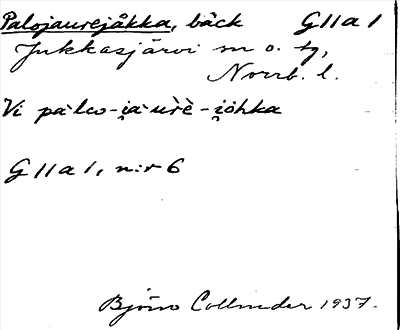 Palojaurejåkka, bäck G 11 a 1
Jukkasjärvi sn o. tg,
Norrb. l.
Vi pa·lco-i̯a·urè-i̯ohka
G 11 a 1, n:r 6
Björn Collinder 1937.